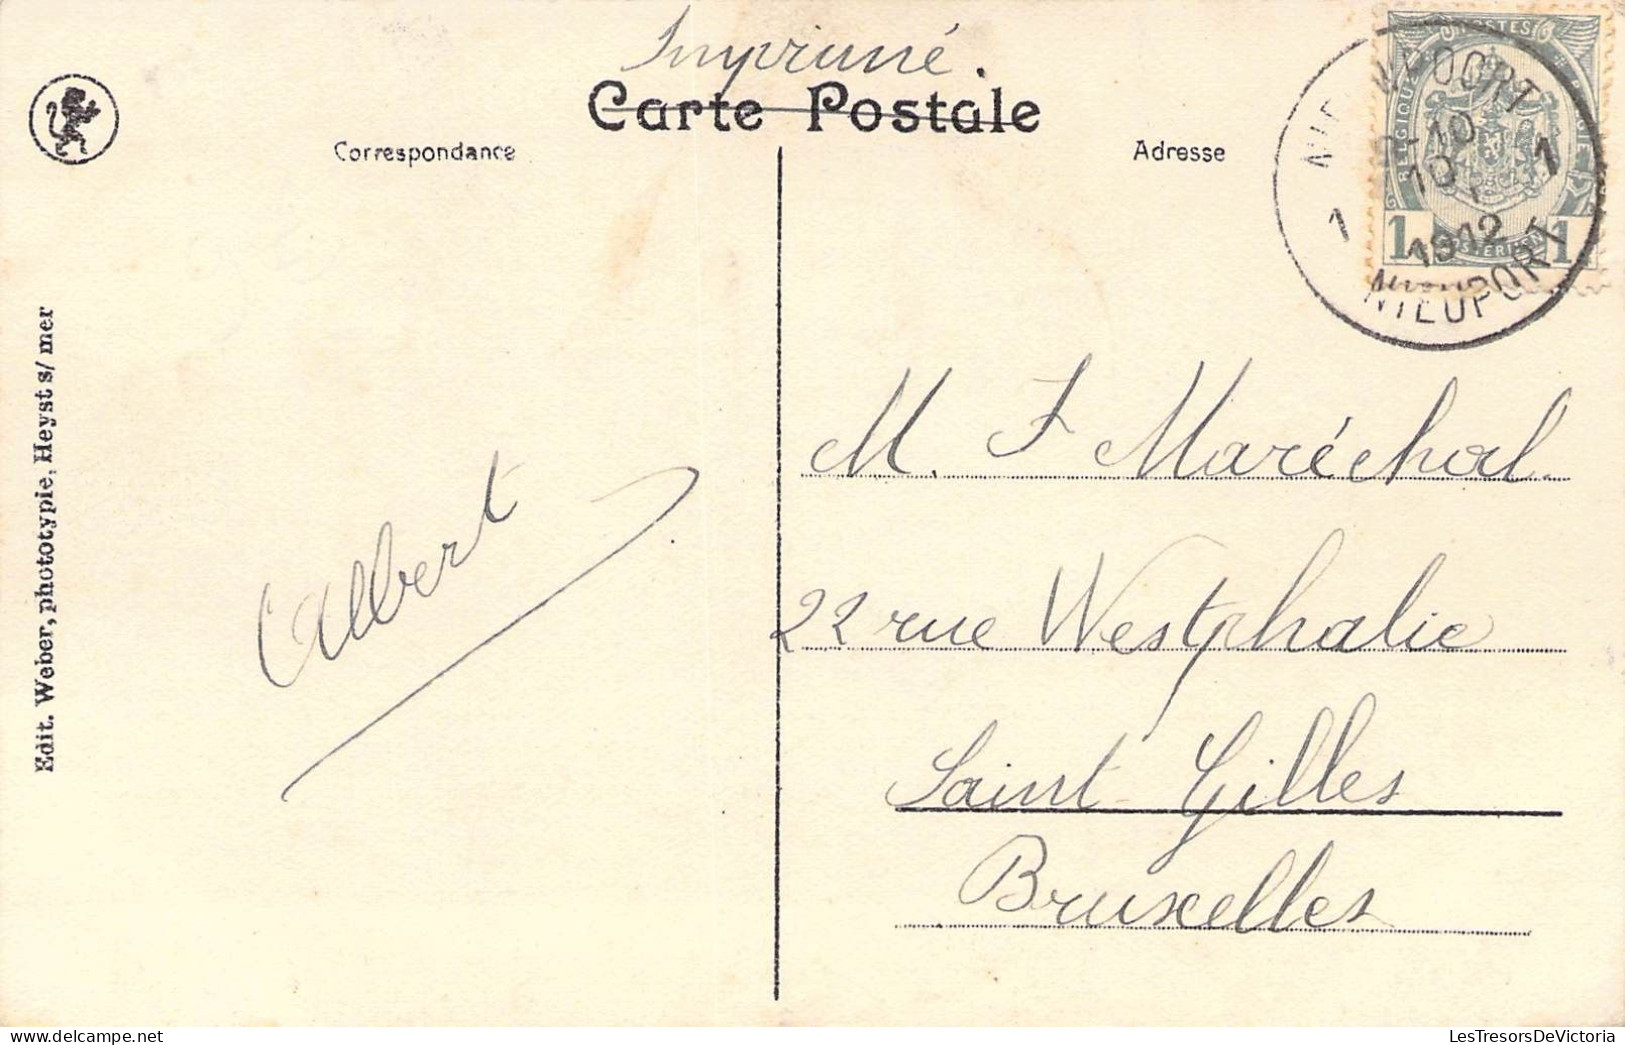 Imprimé.
Carte Postale
Correspondance
Adresse
NIEUPORT
1912
1
1
BELGIQUE
POSTES
1 1
M. J Maréchal.
22 rue Westphalie
Saint-Gilles
Bruxelles
Albert
Edit. Weber, phototypie, Heyst s/ mer
LesTresorsDeVictoria